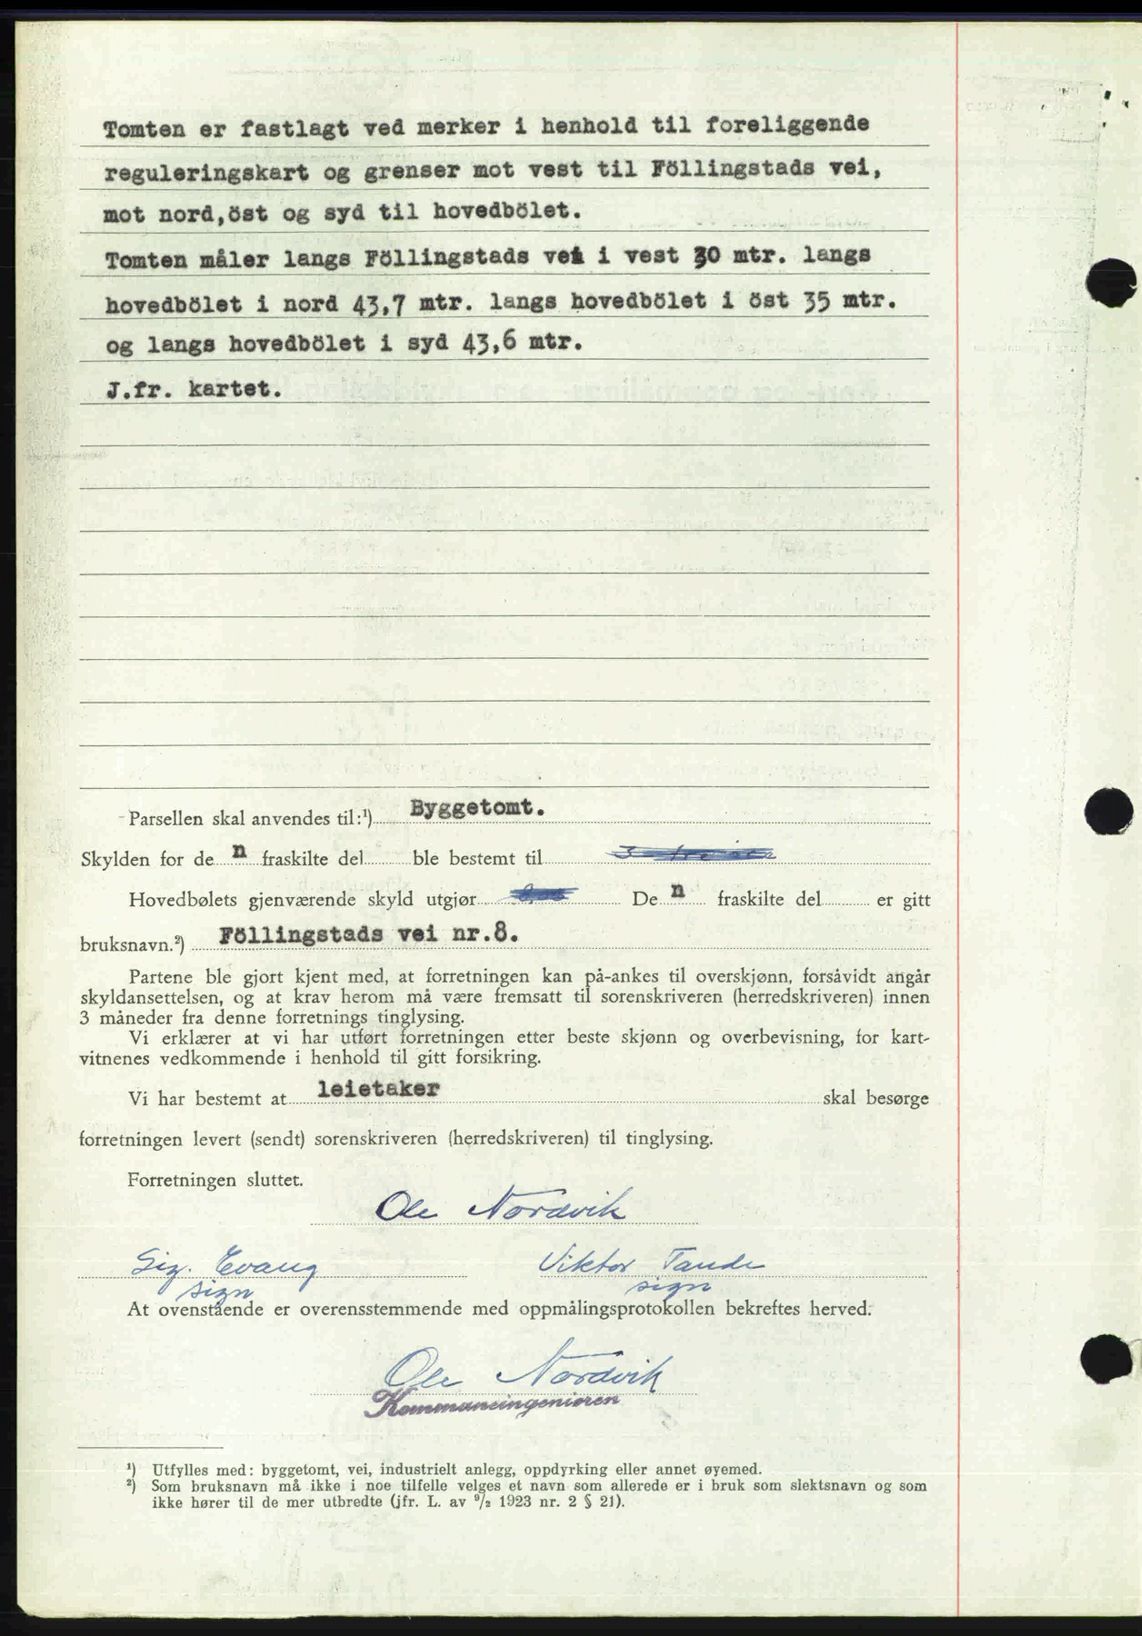 Tomten er fastlagt ved merker i henhold til foreliggende
reguleringskart og grenser mot vest til Föllingstads vei,
mot nord,öst og syd til hovedbölet.
Tomten måler langs Föllingstads vei i vest 30 mtr. langs
hovedbölet i nord 43,7 mtr. langs hovedbölet i öst 35 mtr.
og langs hovedbölet i syd 43,6 mtr.
J.fr. kartet.
Parsellen skal anvendes til:¹) Byggetomt.
Skylden for de n fraskilte del ble bestemt til
Hovedbølets gjenværende skyld utgjør De n fraskilte del er gitt
bruksnavn.²) Föllingstads vei nr.8.
Partene ble gjort kjent med, at forretningen kan på-ankes til overskjønn, forsåvidt angår
skyldansettelsen, og at krav herom må være fremsatt til sorenskriveren (herredskriveren) innen
3 måneder fra denne forretnings tinglysing.
Vi erklærer at vi har utført forretningen etter beste skjønn og overbevisning, for kart-
vitnenes vedkommende i henhold til gitt forsikring.
Vi har bestemt at leietaker skal besørge
forretningen levert (sendt) sorenskriveren (herredskriveren) til tinglysing.
Forretningen sluttet.
Ole Nordvik
Sig. Evang Viktor Tande
sign sign
At ovenstående er overensstemmende med oppmålingsprotokollen bekreftes herved.
Ole Nordvik
Kommuneingeniøren
¹) Utfylles med: byggetomt, vei, industrielt anlegg, oppdyrking eller annet øyemed.
²) Som bruksnavn må ikke i noe tilfelle velges et navn som allerede er i bruk som slektsnavn og som
ikke hører til de mer utbredte (jfr. L. av ⁹/₂ 1923 nr. 2 § 21).